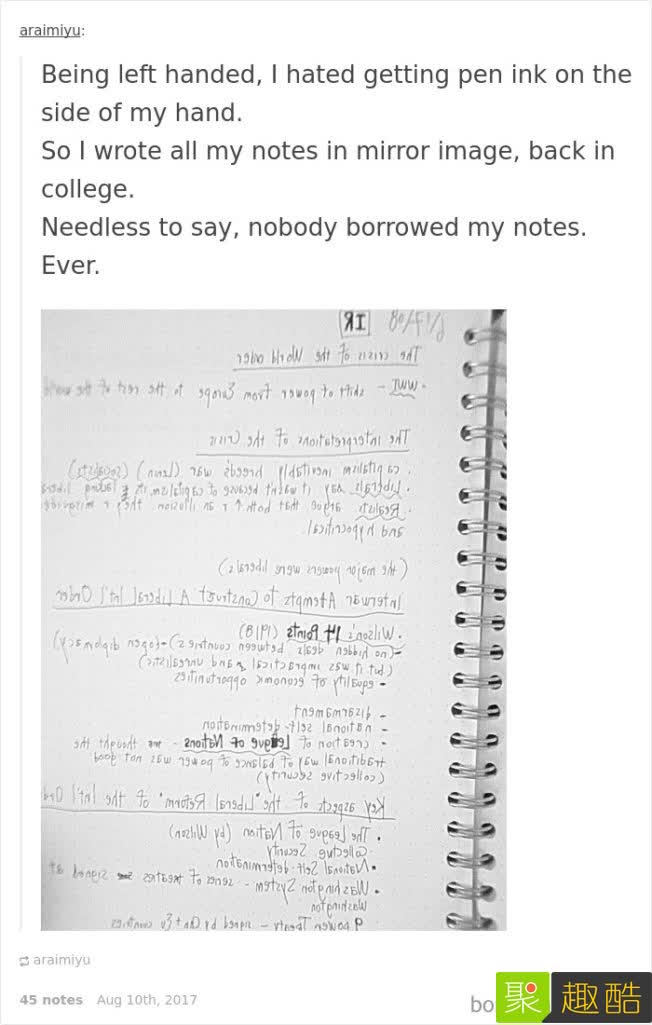 araimiyu:
Being left handed, I hated getting pen ink on the
side of my hand.
So I wrote all my notes in mirror image, back in
college.
Needless to say, nobody borrowed my notes.
Ever.
IR
The crisis of the World order
- WWI - shift of power from Europe to the rest of the world
The interpretations of the Crisis
. capitalism inevitably breeds war (Lenin) (socialists)
. Liberals say it wasn't because of capitalism, it
. Realists argue that both
and hypocritical.
(the major powers were liberals)
Interwar Attempts To Construct A Liberal Int'l Order
. Wilson's 14 Points (1918)
(no hidden deals between countries) (open diplomacy)
(but it was impractical and unrealistic)
- equality of economic opportunities
- disarmament
- national self-determination
- creation of League of Nations - thought the
traditional way of balance of power was not good
(collective security)
Key aspects of the "Liberal Reform" of the Int'l
. The League of Nation (by Wilson)
. Collective Security
. National Self-determination
. Washington System - series of treaties signed at
Washington
9 power Treaty - signed by
araimiyu
45 notes Aug 10th, 2017
bo
聚 趣酷